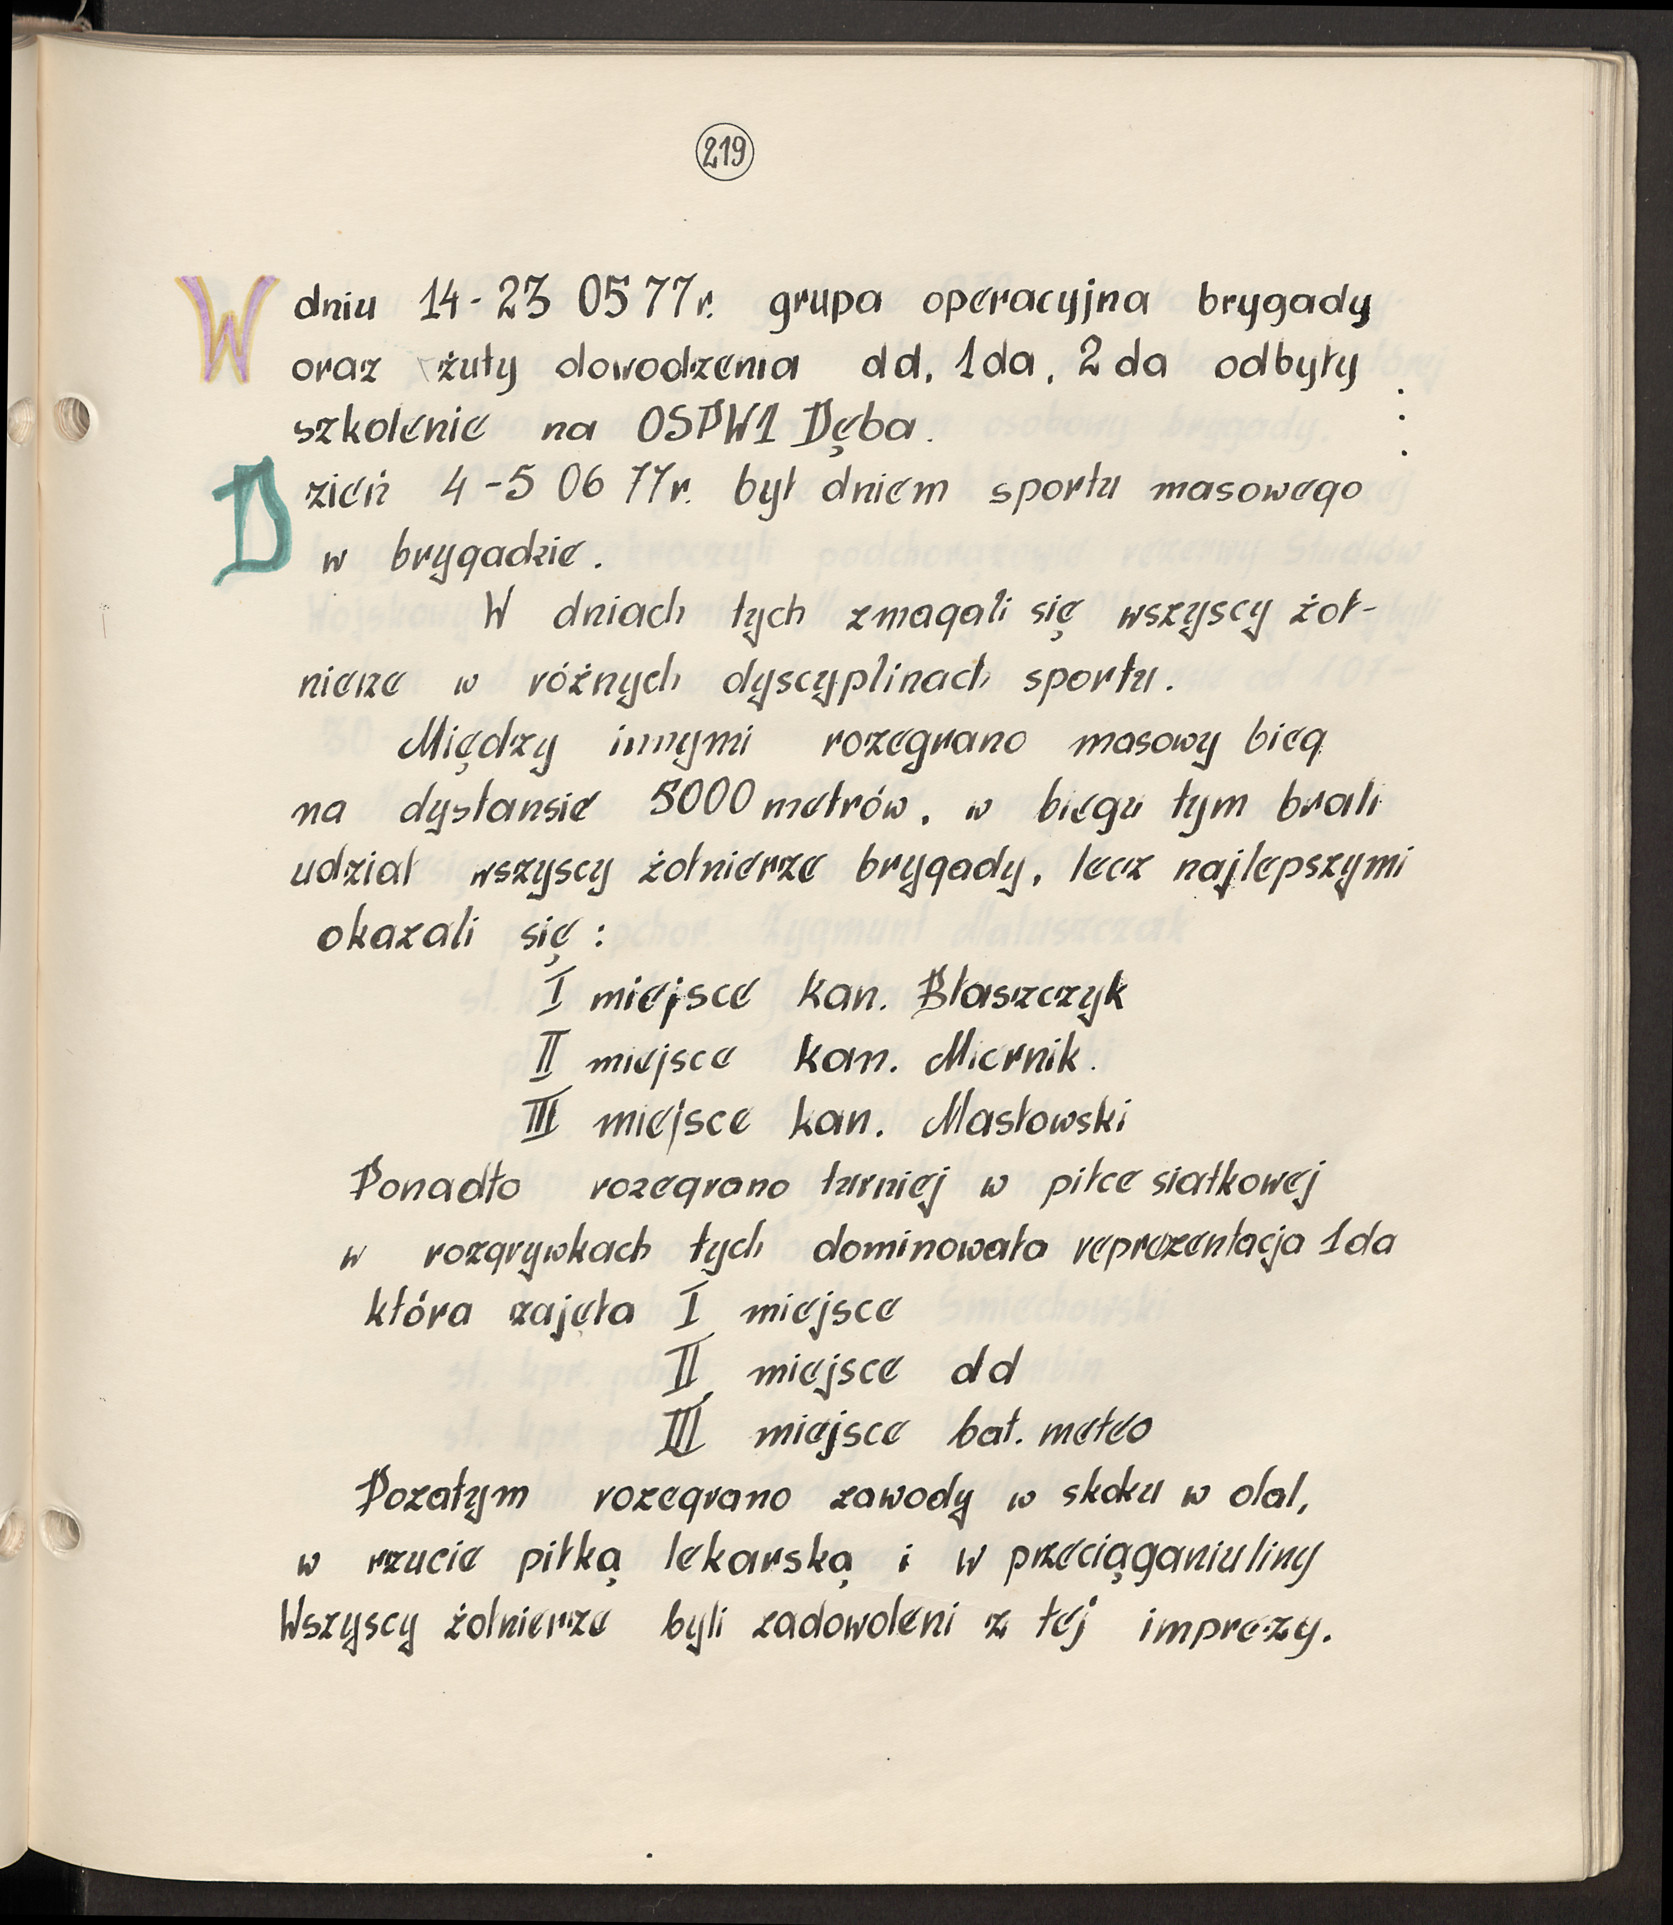 219
W dniu 14-23 05 77r. grupa operacyjna brygady
oraz żuty dowodzenia dd, 1da, 2da odbyły
szkolenie na OSPW1 Dęba.
Dzień 4-5 06 77r. był dniem sportu masowego
w brygadzie.
W dniach tych zmagali się wszyscy żoł-
nierze w różnych dyscyplinach sportu.
Między innymi rozegrano masowy bieg
na dystansie 5000 metrów, w biegu tym brali
udział wszyscy żołnierze brygady, lecz najlepszymi
okazali się:
I miejsce kan. Błaszczyk
II miejsce kan. Miernik.
III miejsce kan. Masłowski
Ponadto rozegrano turniej w piłce siatkowej
w rozgrywkach tych dominowała reprezentacja 1da
która zajęła I miejsce
II miejsce dd
III miejsce bat. meteo
Pozatym rozegrano zawody w skoku w dal,
w rzucie piłką lekarską i w przeciąganiu liny
Wszyscy żołnierze byli zadowoleni z tej imprezy.